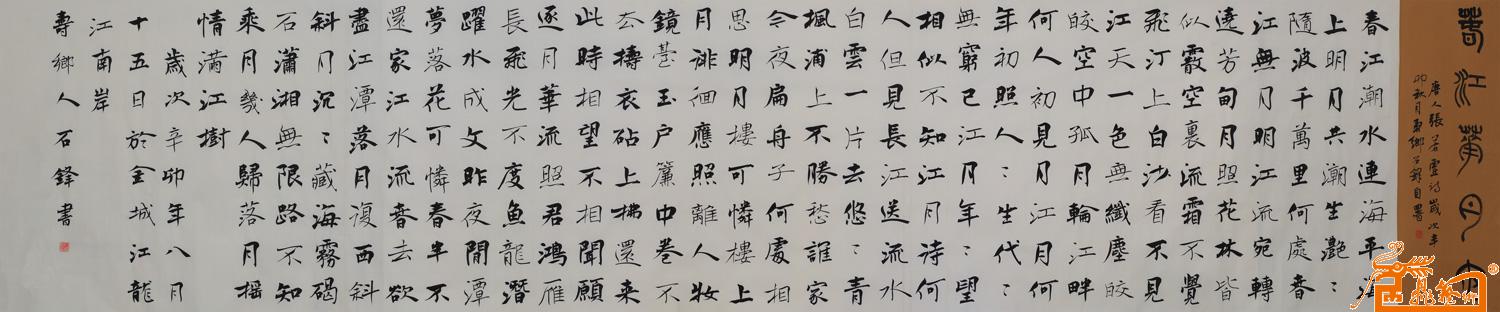 春江華月夜
唐人張若虛詩歲次辛
卯秋月壽鄉石鋒自署
春江潮水連海平海
上明月共潮生灩：
隨波千萬里何處春
江無月明江流宛轉
遶芳甸月照花林皆
似霰空裏流霜不覺
飛汀上白沙看不見
江天一色無纖塵皎
皎空中孤月輪江畔
何人初見月江月何
年初照人：生代：
無窮已江月年：望
相似不知江月詩何
人但見長江送流水
白雲一片去悠：青
楓浦上不勝愁誰家
今夜扁舟子何處相
思明月樓可憐樓上
月徘徊應照離人妝
鏡臺玉戶簾中卷不
去搗衣砧上拂還来
此時相望不相聞願
逐月華流照君鴻雁
長飛光不度魚龍潛
躍水成文昨夜閒潭
夢落花可憐春半不
還家江水流春去欲
盡江潭落月復西斜
斜月沉：藏海霧碣
石瀟湘無限路不知
乘月幾人歸落月搖
情滿江樹
歲次辛卯年八月
十五日於金城江龍
江南岸
壽鄉人石鋒書